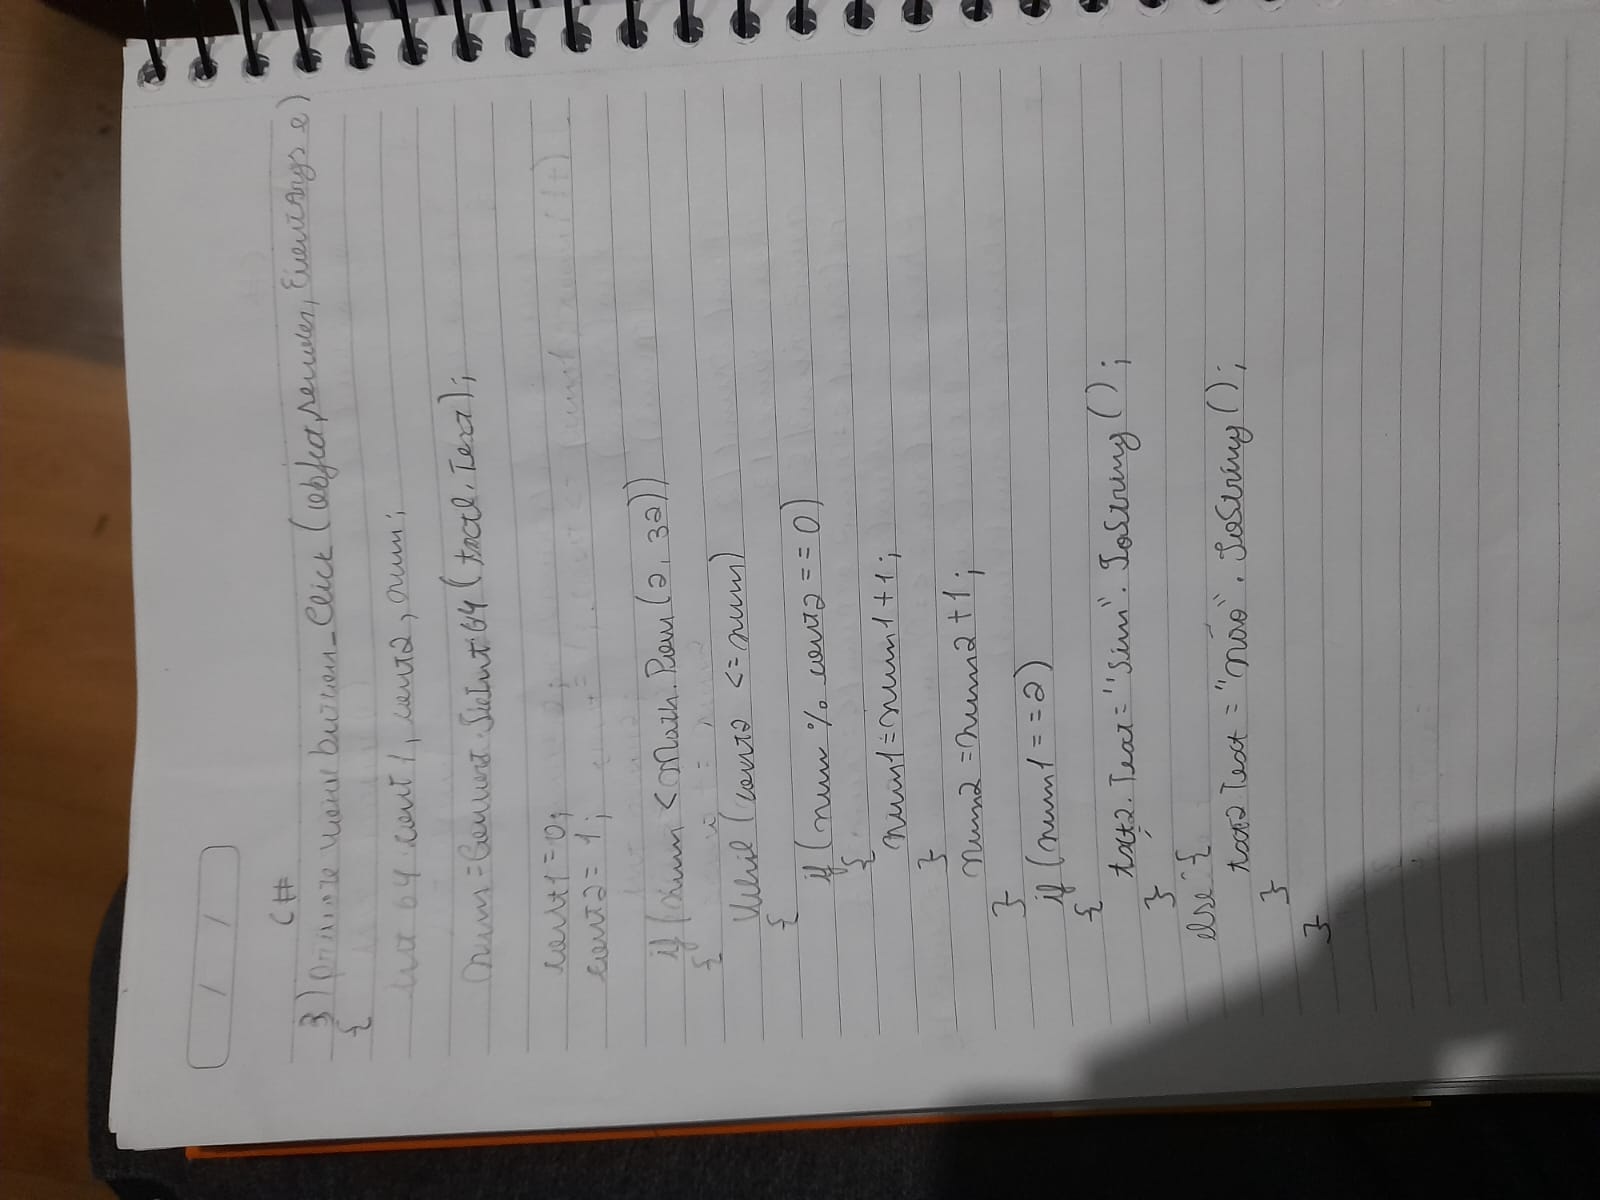 / /
C#
3) private void button_Click (object, sender, EventArgs e)
{
int 64 cont1, cont2, num;
num = Convert.ToInt64 (txt1.Text);
cont1 = 0;
cont2 = 1;
if (num < Math.Pow (2, 32))
{
While (cont2 <= num)
{
if (num % cont2 == 0)
{
num1 = num1 + 1;
}
num2 = num2 + 1;
}
if (num1 == 2)
{
txt2.Text = "Sim".ToString ();
}
else {
txt2 Text = "não".ToString ();
}
}